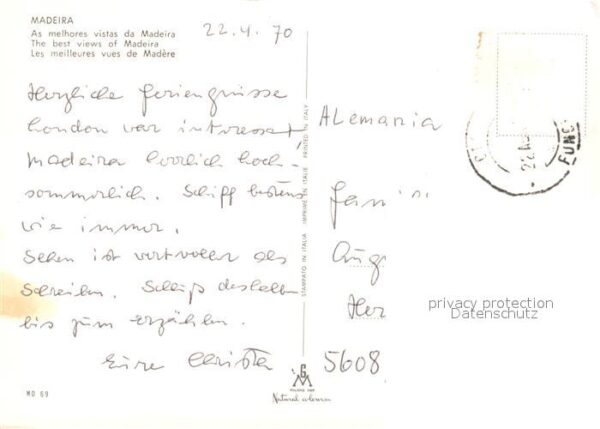 MADEIRA
As melhores vistas da Madeira
The best views of Madeira
Les meilleures vues de Madère
22.4.70
Herzliche Feriengrüsse
London war interessant
Madeira herrlich hoch-
sommerlich. Schiff bestens
wie immer.
Sehen ist wertvoller als
Schreiben. Schluß deshalb
bis zum erzählen.
Eure Christa
STAMPATO IN ITALIA IMPRIMÉ EN ITALIE PRINTED IN ITALY
MD 69
ALemania
Fami
Aug
Her
5608
FUNC
privacy protection
Datenschutz